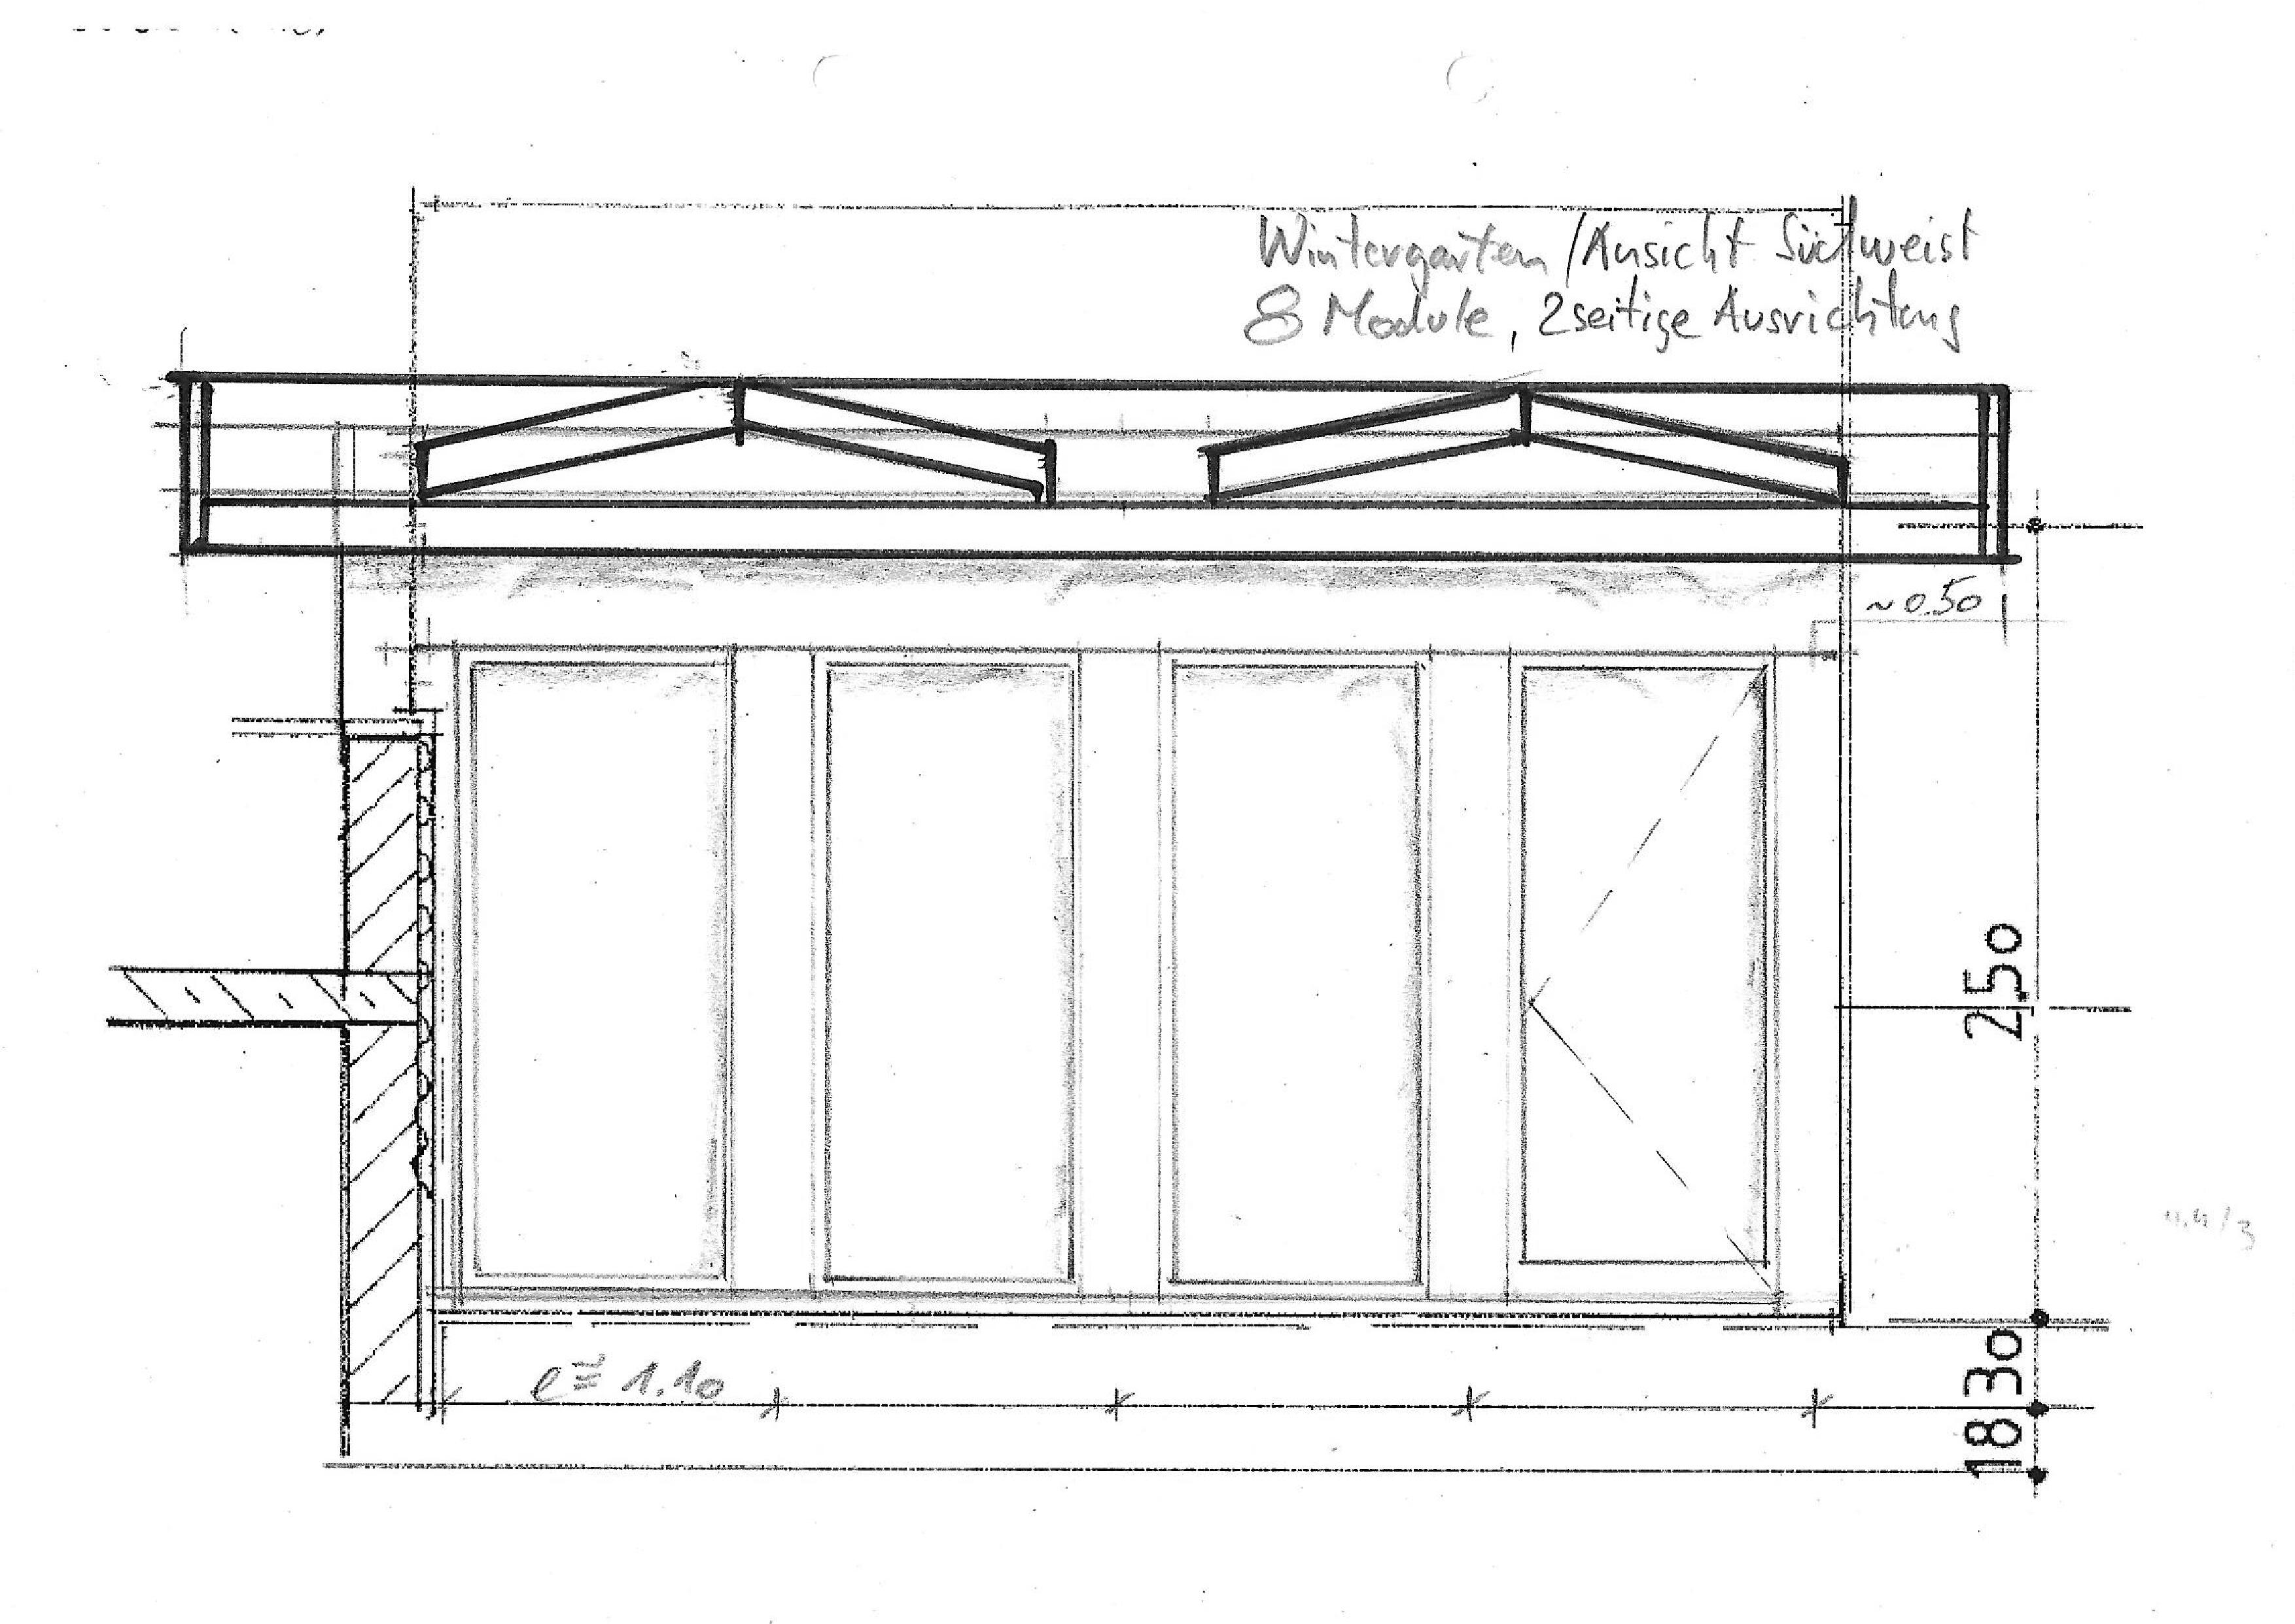 Wintergarten / Ansicht Südweist
8 Module, 2seitige Ausrichtung
~0.50
2,50
e ≅ 1.10
30
18